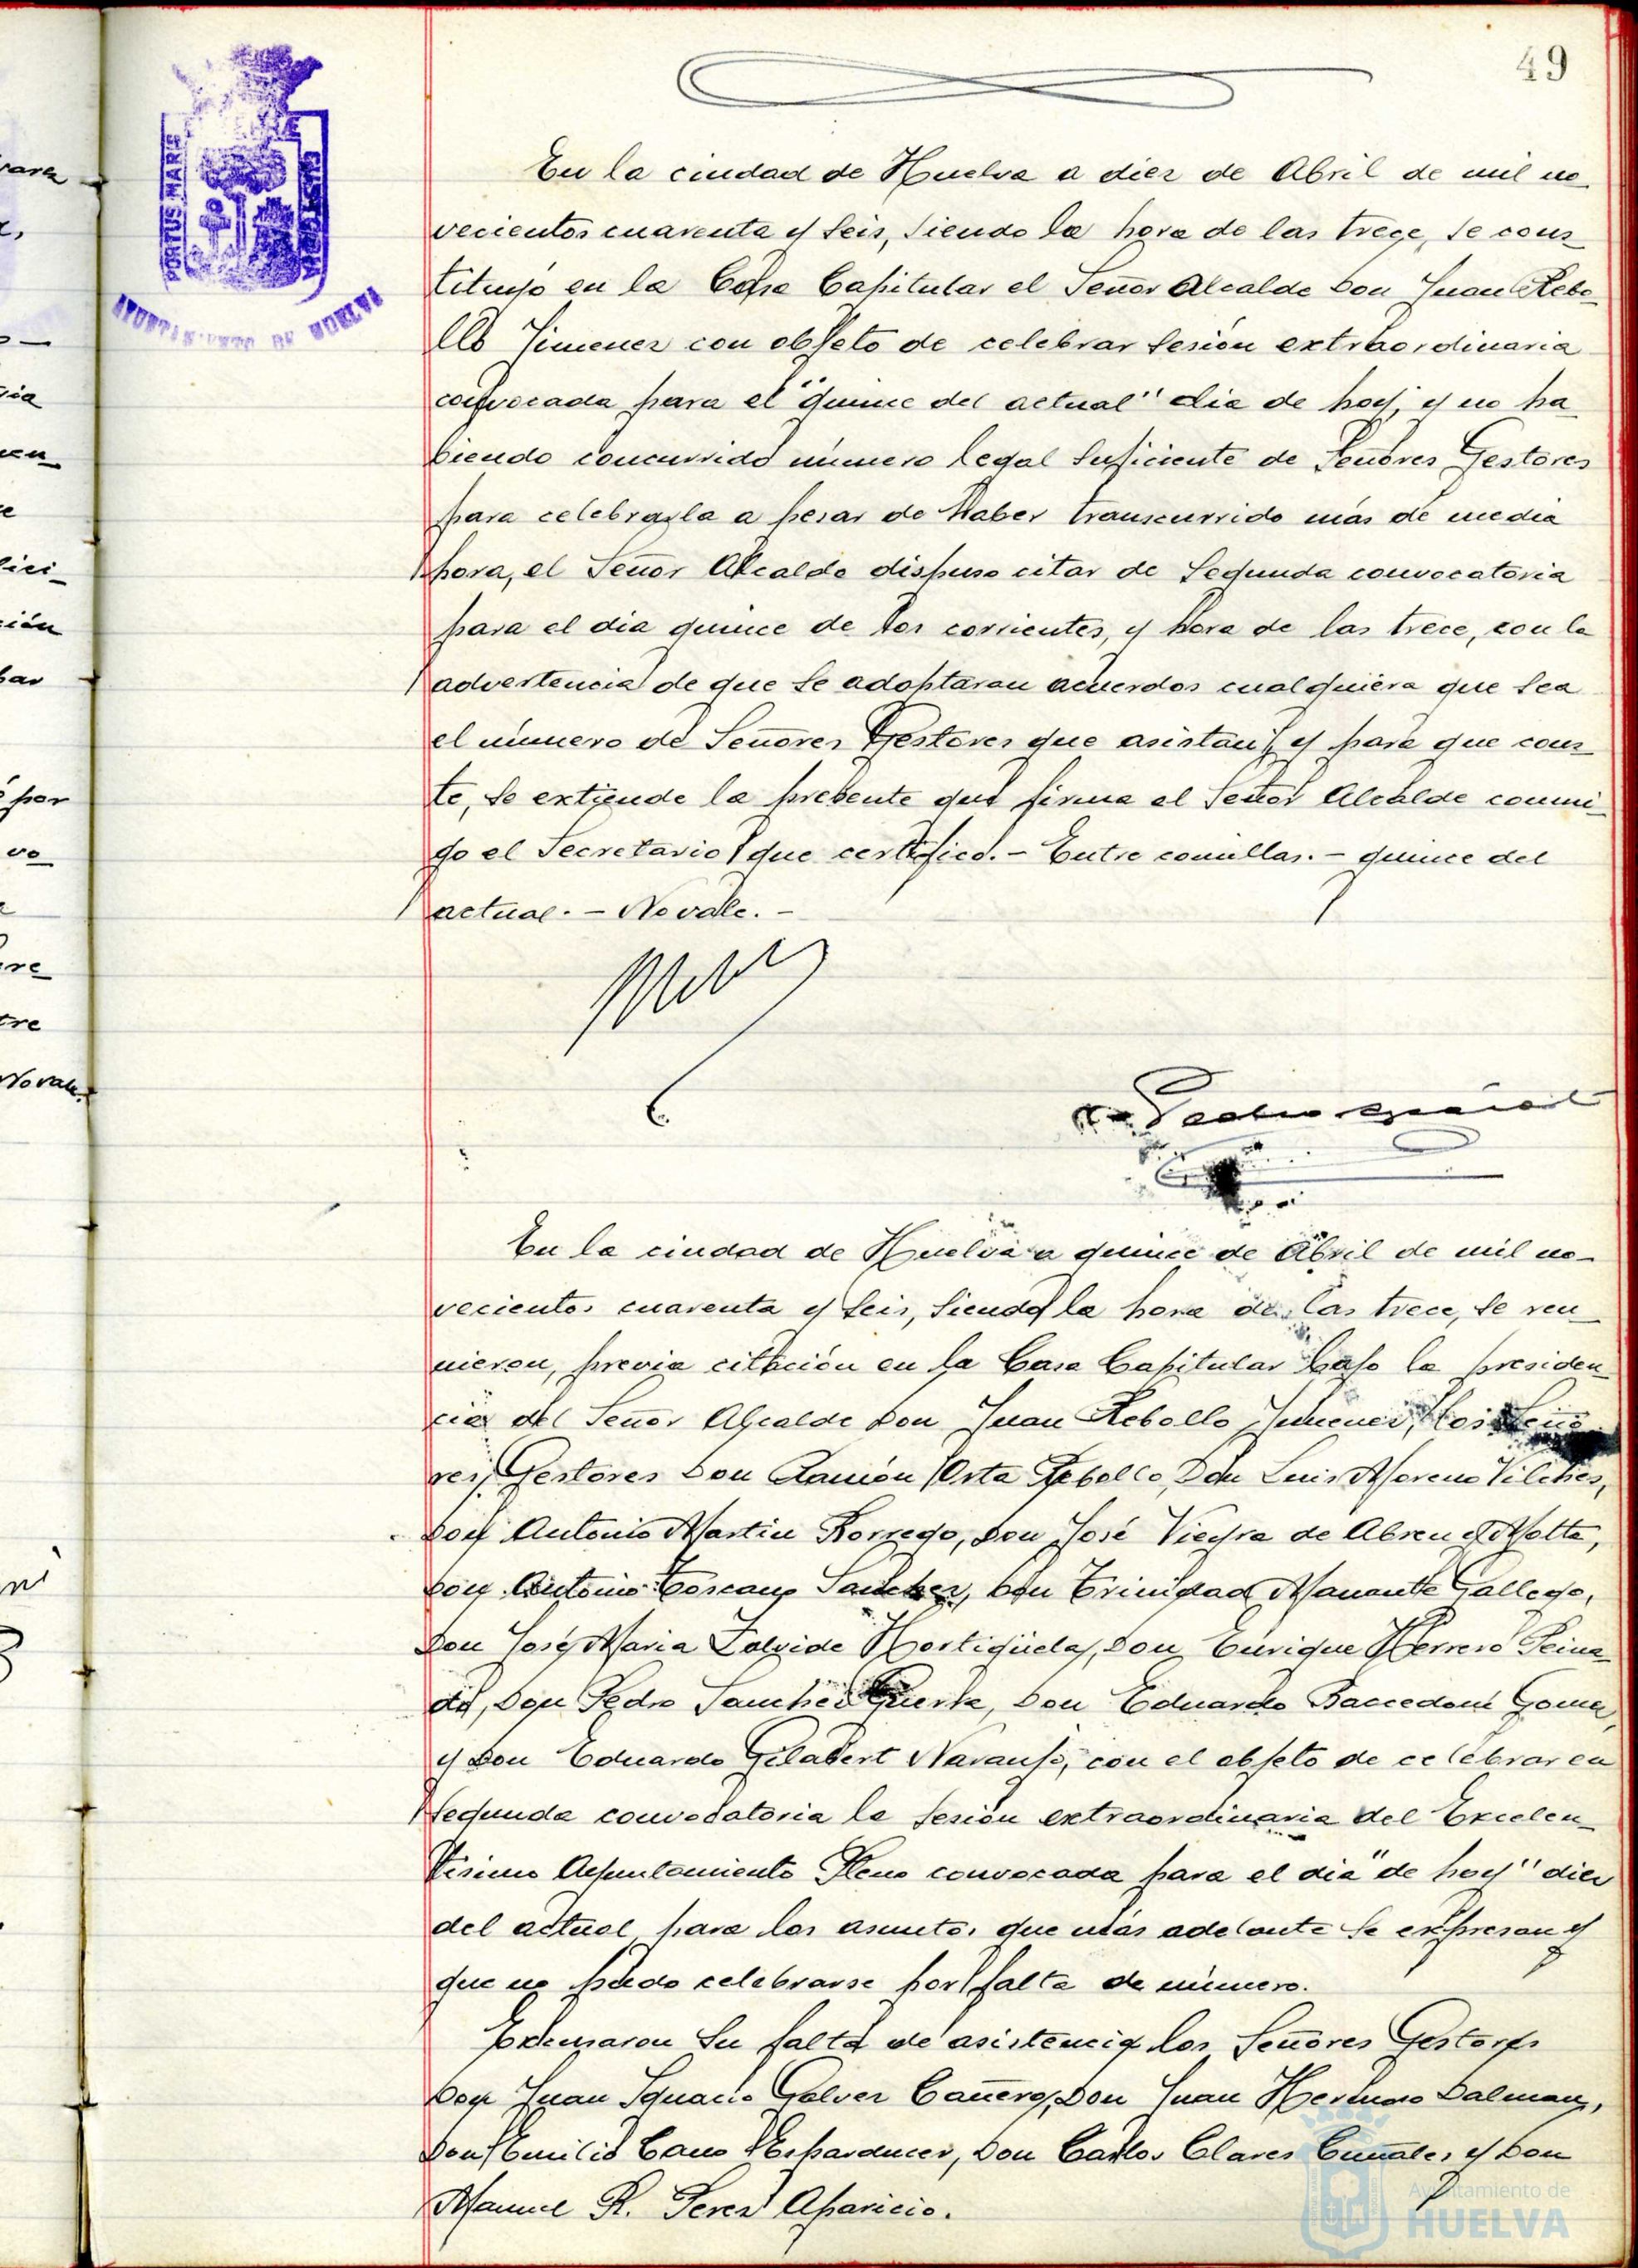 49
PORTUS MARIS
AYUNTAMIENTO DE HUELVA
En la ciudad de Huelva a diez de Abril de mil no-
vecientos cuarenta y seis, siendo la hora de las trece, se cons-
tituyó en la Casa Capitular el Señor Alcalde Don Juan Rebo-
llo Jimenez con objeto de celebrar sesión extraordinaria
convocada para el "quince del actual" dia de hoy, y no ha-
biendo concurrido número legal suficiente de Señores Gestores
para celebrarla a pesar de haber transcurrido más de media
hora, el Señor Alcalde dispuso citar de segunda convocatoria
para el dia quince de los corrientes, y hora de las trece, con la
advertencia de que se adoptaran acuerdos cualquiera que sea
el número de Señores Gestores que asistan; y para que cons-
te, se extiende la presente que firma el Señor Alcalde conmi-
go el Secretario que certifico.- Entre comillas.- quince del
actual.- No vale.-
En la ciudad de Huelva a quince de Abril de mil no-
vecientos cuarenta y seis, siendo la hora de las trece, se reu-
nieron, previa citación en la Casa Capitular bajo la presiden-
cia del Señor Alcalde Don Juan Rebollo Jimenez, los Seño-
res Gestores Don Ramón Orta Rebollo, Don Luis Moreno Vilches,
Don Antonio Martin Borrego, Don José Vieyra de Abreu y Motta,
Don Antonio Toscano Sanchez, Don Trinidad Manante Gallego,
Don José Maria Zalvide Hortigüela, Don Enrique Herrero Peina-
do, Don Pedro Sanchez Guerta, Don Eduardo Baccedoni Gomez,
y Don Eduardo Gilabert Naranjo, con el objeto de celebrar en
segunda convocatoria la sesión extraordinaria del Excelen-
tisimo Ayuntamiento Pleno convocada para el dia "de hoy" diez
del actual para los asuntos que más adelante se expresan y
que no pudo celebrarse por falta de número.
Excusaron su falta de asistencia los Señores Gestores
Don Juan Ignacio Galvez Cañero, Don Juan Hermoso Dalmau,
Don Emilio Cano Esparducer, Don Carlos Clares Cuñales y Don
Manuel R. Perez Aparicio.
Ayuntamiento de
HUELVA